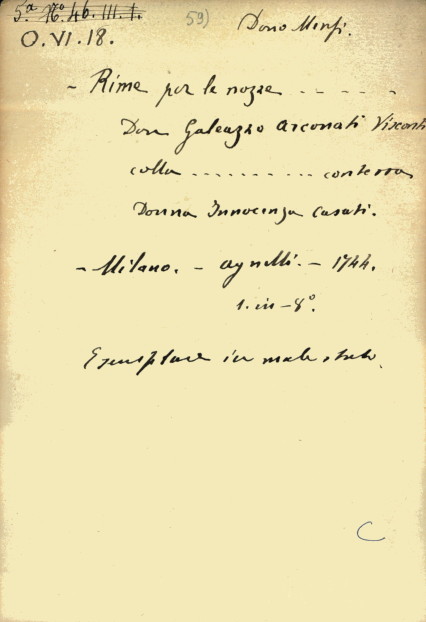 5.a No. 46. III. 1.
59)
Dono Minfi.
O.VI.18.
- Rime per le nozze - - - - -
Don Galeazzo Arconati Visconti
colla - - - - - - - - - contessa
Donna Innocenza Casati.
- Milano. - Agnelli. - 1744.
1. in-8°.
Esemplare in male stato.
C